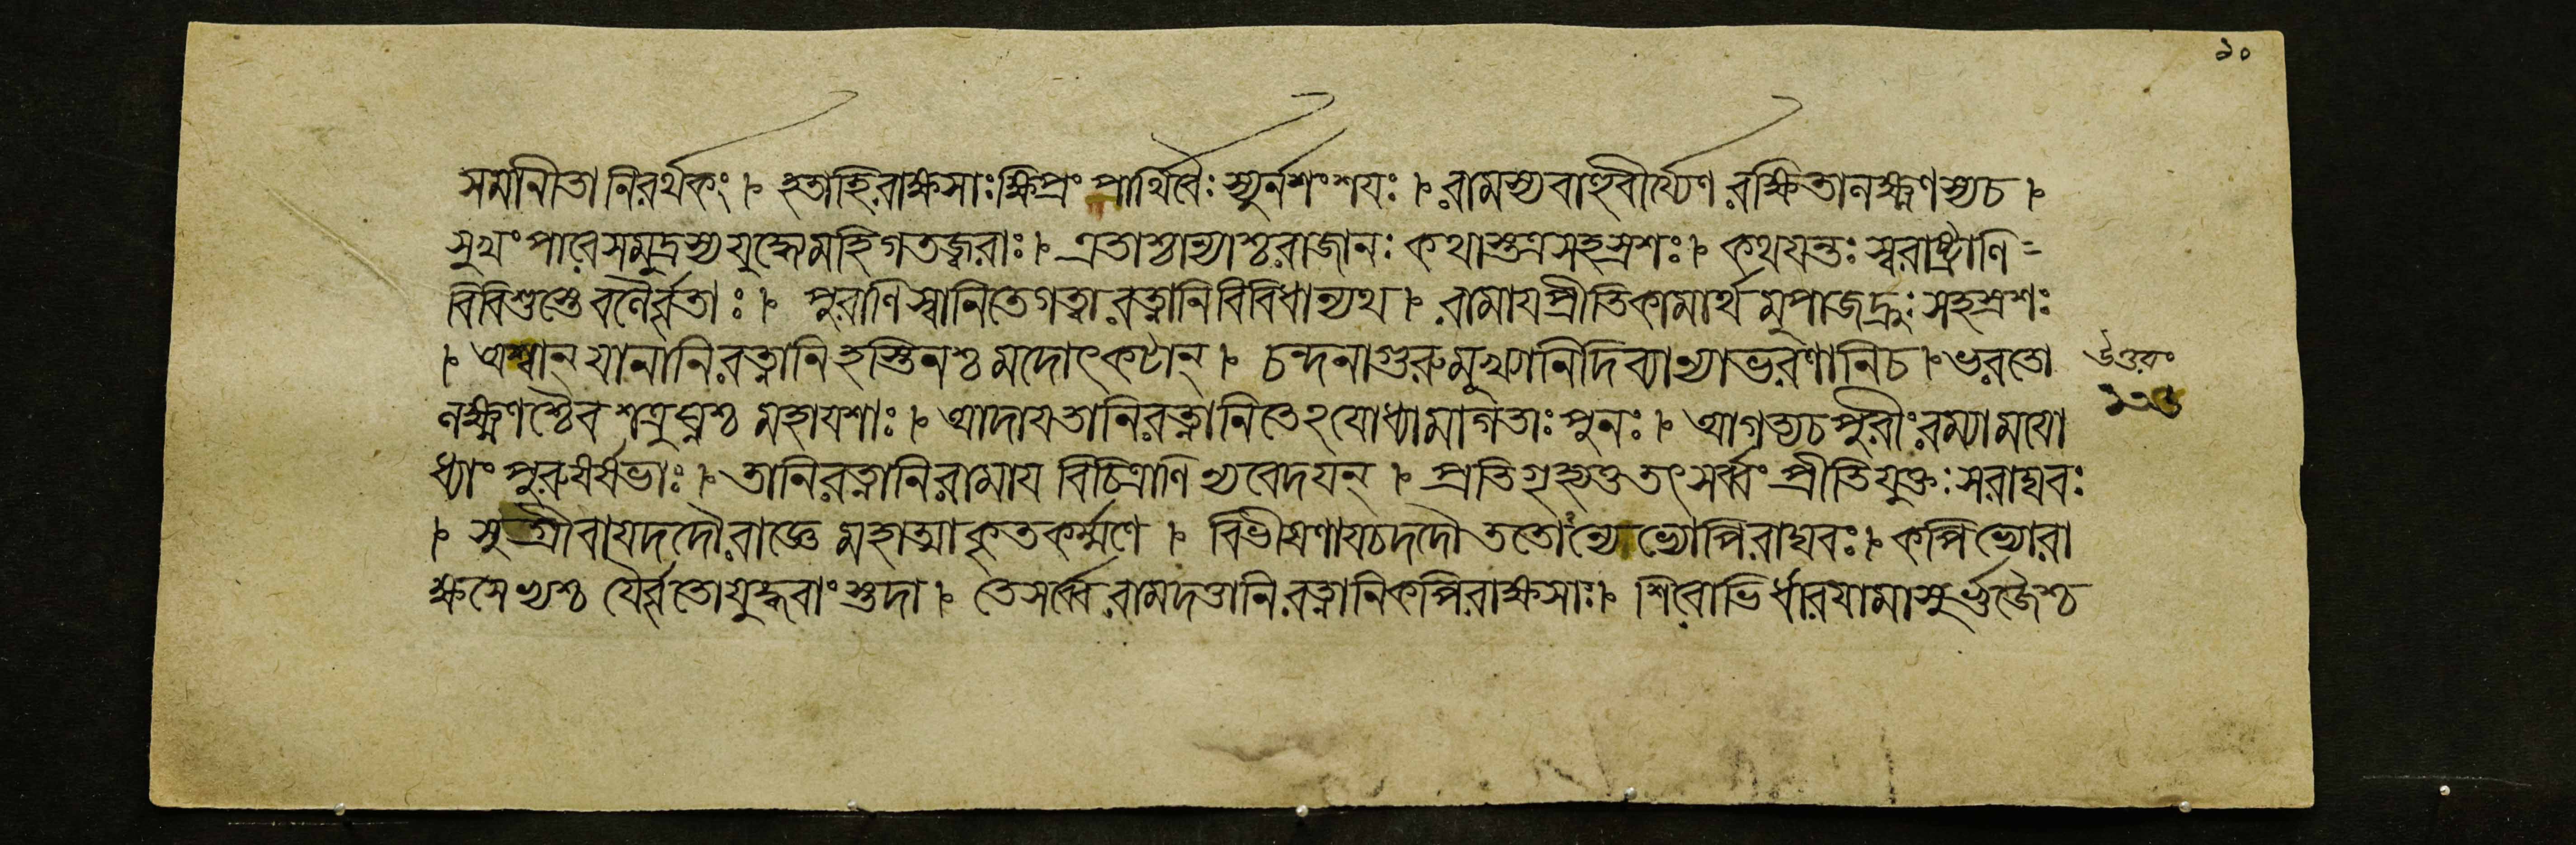 ১০
সমানীতা নিরর্থকং ৷ হতাহি রাক্ষসাঃ ক্ষিপ্রং পার্থিবৈঃ স্যুর্নশংশযঃ ৷ রামস্য বাহুবীর্য্যেণ রক্ষিতা লক্ষ্মণস্য চ ৷
সুখং পারে সমুদ্রস্য যুদ্ধ্যেমহি গতজ্বরাঃ ৷ এতাশ্চান্যাশ্চ রাজানঃ কথাস্তত্র সহস্রশঃ ৷ কথযন্তঃ স্বরাষ্ট্রাণি =
বিবিশুস্তে বলৈর্বৃতাঃ ৷ পুরাণি স্বানি তে গত্বা রত্নানি বিবিধান্যথ ৷ রামায প্রীতিকামার্থমুপাজহ্রুঃ সহস্রশঃ
৷ অশ্বান্ যানানি রত্নানি হস্তিনশ্চ মদোৎকটান্ ৷ চন্দনাগুরুমুখ্যানি দিব্যান্যাভরণানি চ ৷ ভরতো
উত্তরং
লক্ষ্মণশ্চৈব শত্রুঘ্নশ্চ মহাযশাঃ ৷ আদায তানি রত্নানি তেঽযোধ্যামাগতাঃ পুনঃ ৷ আগত্য চ পুরীং রম্যামযো
ধ্যাং পুরুষর্ষভাঃ ৷ তানি রত্নানি রামায বিচিত্রাণি ন্যবেদযন্ ৷ প্রতিগৃহ্য তু তৎ সর্ব্বং প্রীতিযুক্তঃ স রাঘবঃ
৷ সুগ্রীবায দদৌ রাজ্ঞে মহাত্মা কৃতকর্ম্মণে ৷ বিভীষণায চ দদৌ ততোন্যেভ্যোপি রাঘবঃ ৷ কপিভ্যো রা
ক্ষসেভ্যশ্চ যৈর্বৃতো যুদ্ধবাংস্তদা ৷ তে সর্ব্বে রামদত্তানি রত্নানি কপিরাক্ষসাঃ ৷ শিরোভির্ধারযামাসুর্ভুজৈশ্চ